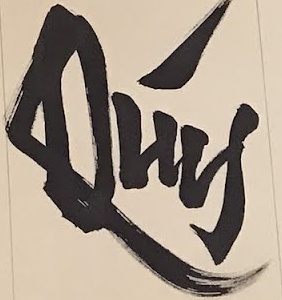 Quý